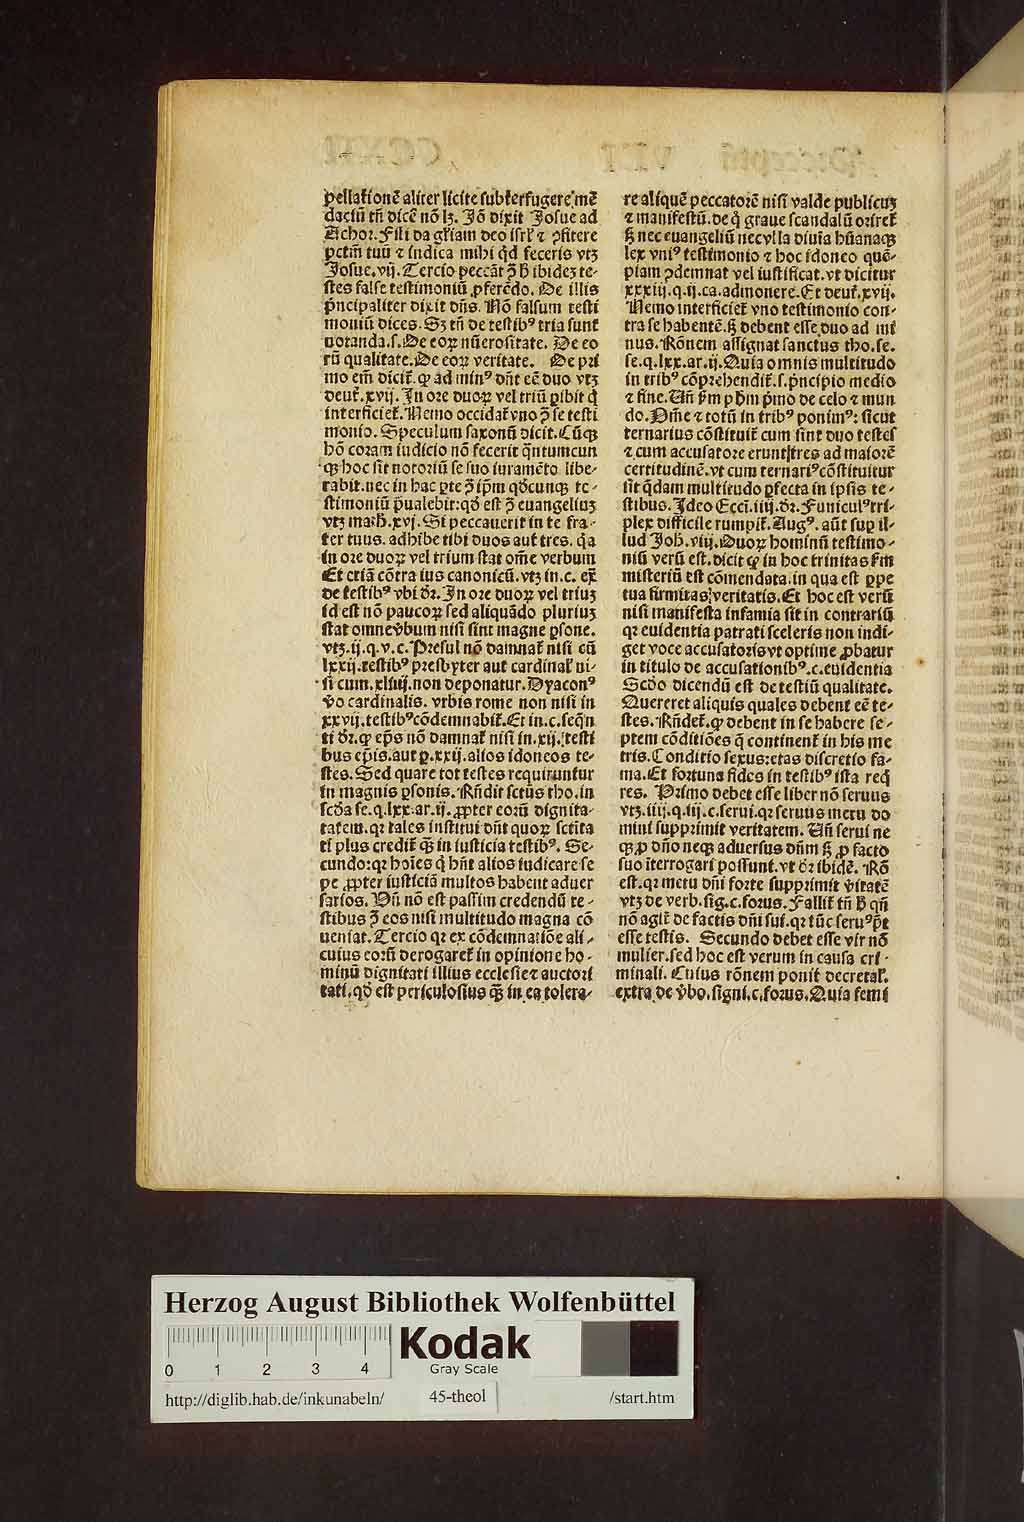 pellationē aliter licite subterfugere mē
daciū tñ dicē nō lꝫ. Jō dixit Josue ad
Achor. Fili da gl'iam deo isrl' ⁊ ꝓfitere
pctm̄ tuū ⁊ indica mihi qd feceris vtꝫ
Josue. vij. Tercio peccāt ꝯ h̄ ibidez te-
stes false testimoniū ꝓferēdo. De illis
pñcipaliter dixit dñs. Nō falsum testi
moniū dices. Sꝫ tñ de testibꝰ tria sunt
notanda. s. De eoꝝ nūerositate. De eo
rū qualitate. De eoꝝ veritate. De pri
mo em̄ dicit̄. ꝙ ad minꝰ dñt eē duo vtꝫ
deut̄. xvij. In ore duoꝝ vel triū ꝑibit q̇
interficiet̄. Nemo occidat̄ vno ꝯ se testi
monio. Speculum saxonū dicit. Cūqꝫ
hō coram iudicio nō fecerit q̄ntumcun
qꝫ hoc sit notoriū se suo iuramēto libe-
rabit. nec in hac ꝑte ꝯ ip̄m qdcunqꝫ te-
stimoniū p̄ualebit: qd est ꝯ euangeliuꝫ
vtꝫ math. xvj. Si peccauerit in te fra-
ter tuus. adhibe tibi duos aut tres. q̇a
in ore duoꝝ vel trium stat om̄e verbum
Et eciā cōtra ius canonicū. vtꝫ in. c. ex̄
de testibꝰ vbi dr̄. In ore duoꝝ vel triuꝫ
id est nō paucoꝝ sed aliquādo pluriuꝫ
stat omne v̄bum nisi sint magne ꝑsone.
vtꝫ. ij. q. v. c. Presul nō damnat̄ nisi cū
lxxij. testibꝰ presbyter aut cardinal' ni-
si cum. xliiij. non deponatur. Dyaconꝰ
v̄o cardinalis. vrbis rome non nisi in
xxvij. testibꝰ cōdemnabit̄. Et in. c. seq̄n
ti dr̄. ꝙ ep̄s nō damnat̄ nisi in. xij. testi
bus ep̄is. aut ꝑ. xxij. alios idoneos te-
stes. Sed quare tot testes requiruntur
in magnis ꝑsonis. Rñdit sctūs tho. in
scd̄a se. q. lxx. ar. ij. ꝓpter eorū dignita-
tatem. qꝛ tales institui dñt quoꝝ sctita
ti plus credit̄ q̄ꝫ in iusticia testibꝰ. Se-
cundo: qꝛ hoīes q̇ hñt alios iudicare se
pe ꝓpter iusticiā multos habent aduer
sarios. Vñ nō est passim credendū te-
stibus ꝯ eos nisi multitudo magna cō
ueniat. Tercio qꝛ ex cōdemnatiōe ali-
cuius eorū derogaret̄ in opinione ho-
minū dignitati illius ecclesie ⁊ auctori
tati. qd est periculosius q̄ꝫ in ea tolera-
re aliquē peccatorē nisi valde publicuꝫ
⁊ manifestū. de q̇ graue scandalū oriret̄
sꝫ nec euangeliū nec vlla diuīa hūanaqꝫ
lex vniꝰ testimonio ⁊ hoc idoneo quē-
piam ꝯdemnat vel iustificat. vt dicitur
xxxiij. q. ij. ca. admonere. Et deut̄. xvij.
Nemo interficiet̄ vno testimonio con-
tra se habentē. sꝫ debent esse duo ad mi
nus. Rōnem assignat sanctus tho. se.
se. q. lxx. ar. ij. Quia omnis multitudo
in tribꝰ cōprehendit̄. s. pñcipio medio
⁊ fine. Vñ s̄m ph̄m p̄mo de celo ⁊ mun
do. Om̄e ⁊ totū in tribꝰ ponimꝰ: sicut
ternarius cōstituit̄ cum sint duo testes
⁊ cum accusatore erunt tres ad maiorē
certitudinē. vt cum ternariꝰ cōstituitur
sit q̄dam multitudo ꝑfecta in ipsis te-
stibus. Ideo Eccī. iiij. dr̄. Funiculꝰ tri-
plex difficile rumpit̄. Augꝰ. aūt suꝑ il-
lud Joh̄. viij. Duoꝝ hominū testimo-
niū verū est. dicit ꝙ in hoc trinitas s̄m
misteriū est cōmendata. in qua est ꝑpe
tua firmitas veritatis. Et hoc est verū
nisi manifesta infamia sit in contrariū
qꝛ euidentia patrati sceleris non indi-
get voce accusatoris vt optime ꝓbatur
in titulo de accusationibꝰ. c. euidentia
Scd̄o dicendū est de testiū qualitate.
Quereret aliquis quales debent eē te-
stes. Rñdet̄. ꝙ debent in se habere se-
ptem cōditiōes q̄ continent̄ in his me
tris. Conditio sexus: etas discretio fa-
ma. Et fortuna fides in testibꝰ ista req̇
res. Primo debet esse liber nō seruus
vtꝫ. iiij. q. iij. c. serui. qꝛ seruus metu do
mini supprimit veritatem. Vñ serui ne
qꝫ ꝓ dño neqꝫ aduersus dñm sꝫ ꝓ facto
suo īterrogari possunt. vt dr̄ ibidē. Rō
est. qꝛ metu dñi forte supprimit v̄itatē
vtꝫ de verb. sig. c. forus. Fallit̄ tñ h̄ qñ
nō agit̄ de factis dñi sui. qꝛ tūc seruꝰ p̄t
esse testis. Secundo debet esse vir nō
mulier. sed hoc est verum in causa cri-
minali. Cuius rōnem ponit decretal'.
extra de v̄bo. signi. c. forus. Quia femi
Herzog August Bibliothek Wolfenbüttel
Kodak
Gray Scale
0 1 2 3 4
http://diglib.hab.de/inkunabeln/ 45-theol /start.htm